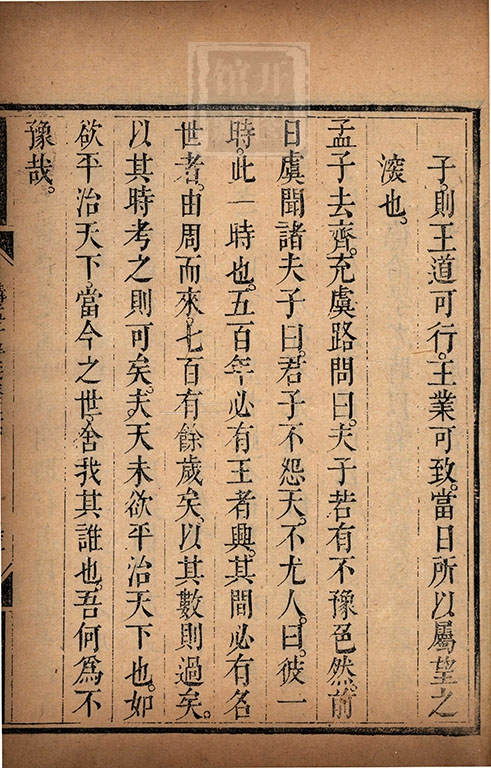 子。則王道可行。王業可致。當日所以屬望之
深也。
孟子去齊。充虞路問曰。夫子若有不豫色然。前
日虞聞諸夫子曰。君子不怨天。不尤人。曰。彼一
時。此一時也。五百年必有王者興。其間必有名
世者。由周而來。七百有餘歲矣。以其數則過矣。
以其時考之則可矣。夫天未欲平治天下也。如
欲平治天下。當今之世。舍我其誰也。吾何為不
豫哉。